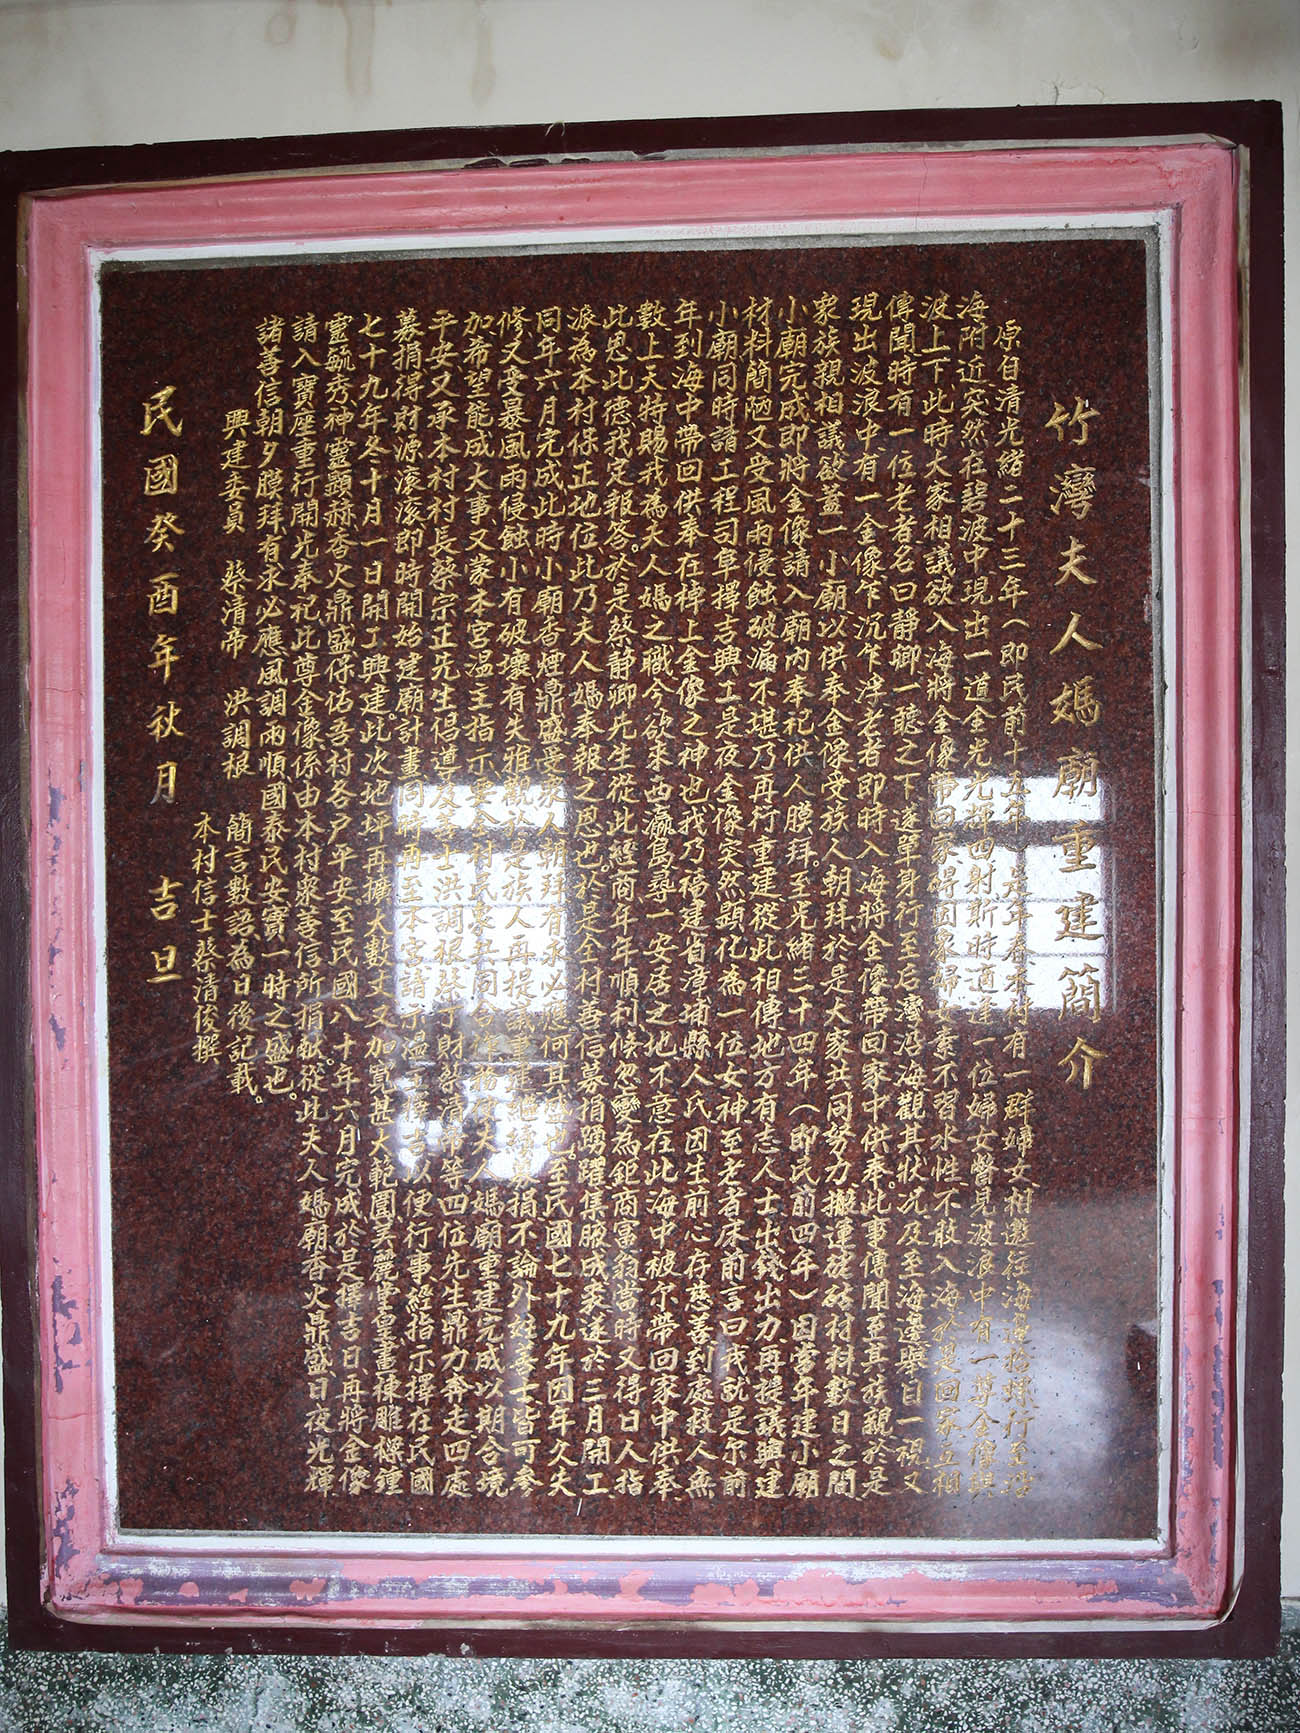 竹灣夫人媽廟重建簡介
原自清光緒二十三年（即民前十五年）是年春本村有一群婦女相邀往海邊拾螺行至沿
海附近突然在碧波中現出一道金光光輝四射斯時適逢一位婦女瞥見波浪中有一尊金像與
波上下此時大家相議欲入海將金像帶回家碍因眾婦女素不習水性不敢入海於是回家互相
傳聞時有一位老者名曰靜卿一聽之下遂單身行至后灣沿海觀其狀況及至海邊舉目一視又
現出波浪中有一金像乍沉乍浮老者即時入海將金像帶回家中供奉。此事傳聞至其族親於是
眾族親相議欲蓋一小廟以供奉金像受族人朝拜於是大家共同努力搬運硓砧材料數日之間
小廟完成即將金像請入廟內奉祀供人膜拜。至光緒三十四年（即民前四年）因當年建小廟
材料簡陋又受風雨侵蝕破漏不堪乃再行重建從此相傳地方有志人士出錢出力再提議興建
小廟同時請工程司阜擇吉興工是夜金像突然顯化為一位女神至老者床前言曰我就是尔前
年到海中帶回供奉在棹上金像之神也我乃福建省漳埔縣人氏因生前心存慈善到處救人無
數上天特賜我為夫人媽之職今欲來西瀛島尋一安居之地不意在此海中被尔帶回家中供奉
此恩此德我定報答。於是蔡靜卿先生從此經商年年順利候忽變為鉅商富翁當時又得日人指
派為本村保正地位此乃夫人媽奉報之恩也。於是全村善信募捐踴躍集腋成裘遂於三月開工
同年六月完成此時小廟香煙鼎盛受眾人朝拜有求必應何其盛也。至民國七十九年因年久失
修又受暴風雨侵蝕小有破壞有失雅觀於是族人再提議重建繼續募捐不論外姓善士皆可參
加希望能成大事又蒙本宮溫主指示要全村民眾共同合作務使夫人媽廟重建完成以期合境
平安又承本村村長蔡宗正先生倡導及善士洪調根蔡丁財蔡清帝等四位先生鼎力奔走四處
募捐得財源滚滚即時開始建廟計畫同時再至本宮請示溫王擇吉以便行事經指示擇在民國
七十九年冬十月一日開工興建。此次地坪再擴大數丈又加寬甚大範圍美麗堂皇畫棟雕樑鍾
靈毓秀神靈顯赫香火鼎盛保佑吾村各戶平安至民國八十年六月完成於是擇吉日再將金像
請入寶座重行開光奉祀此尊金像係由本村眾善信所捐献。從此夫人媽廟香火鼎盛日夜光輝
諸善信朝夕膜拜有求必應風調雨順國泰民安寶一時之盛也。
興建委員　蔡清帝　洪調根　簡言數語為日後記載。
本村信士蔡清俊撰
民國癸酉年秋月　吉旦